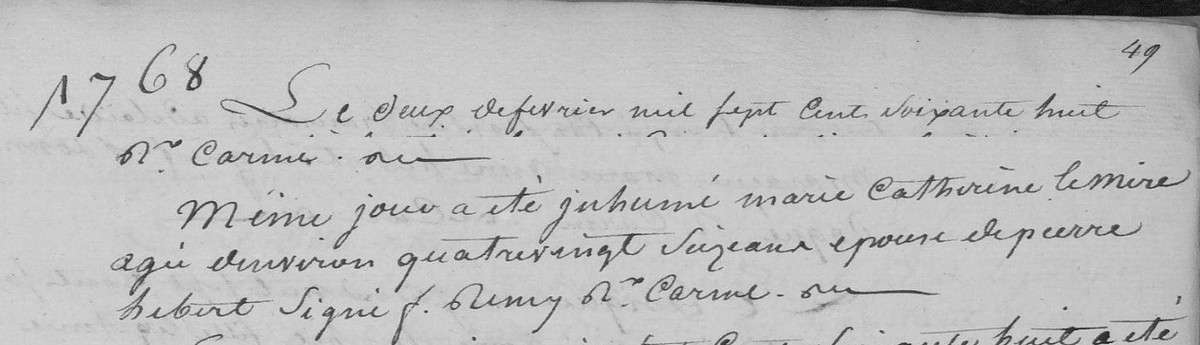 49
1768
Le deux defevrier mil sept cent soixante huit
Rx. Carme.
Même jour a eté juhumé marie Catherine le mire
agée denviron quatrevingt seizeans epouse depierre
hebert signé f. Remy Rx. Carme.
huit a eté